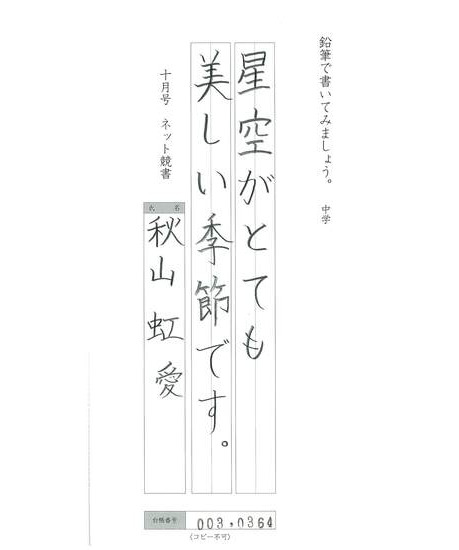 鉛筆で書いてみましょう。 中学
星空がとても
美しい季節です。
十月号 ネット競書
氏名
秋山虹愛
台帳番号 003,0364
(コピー不可)